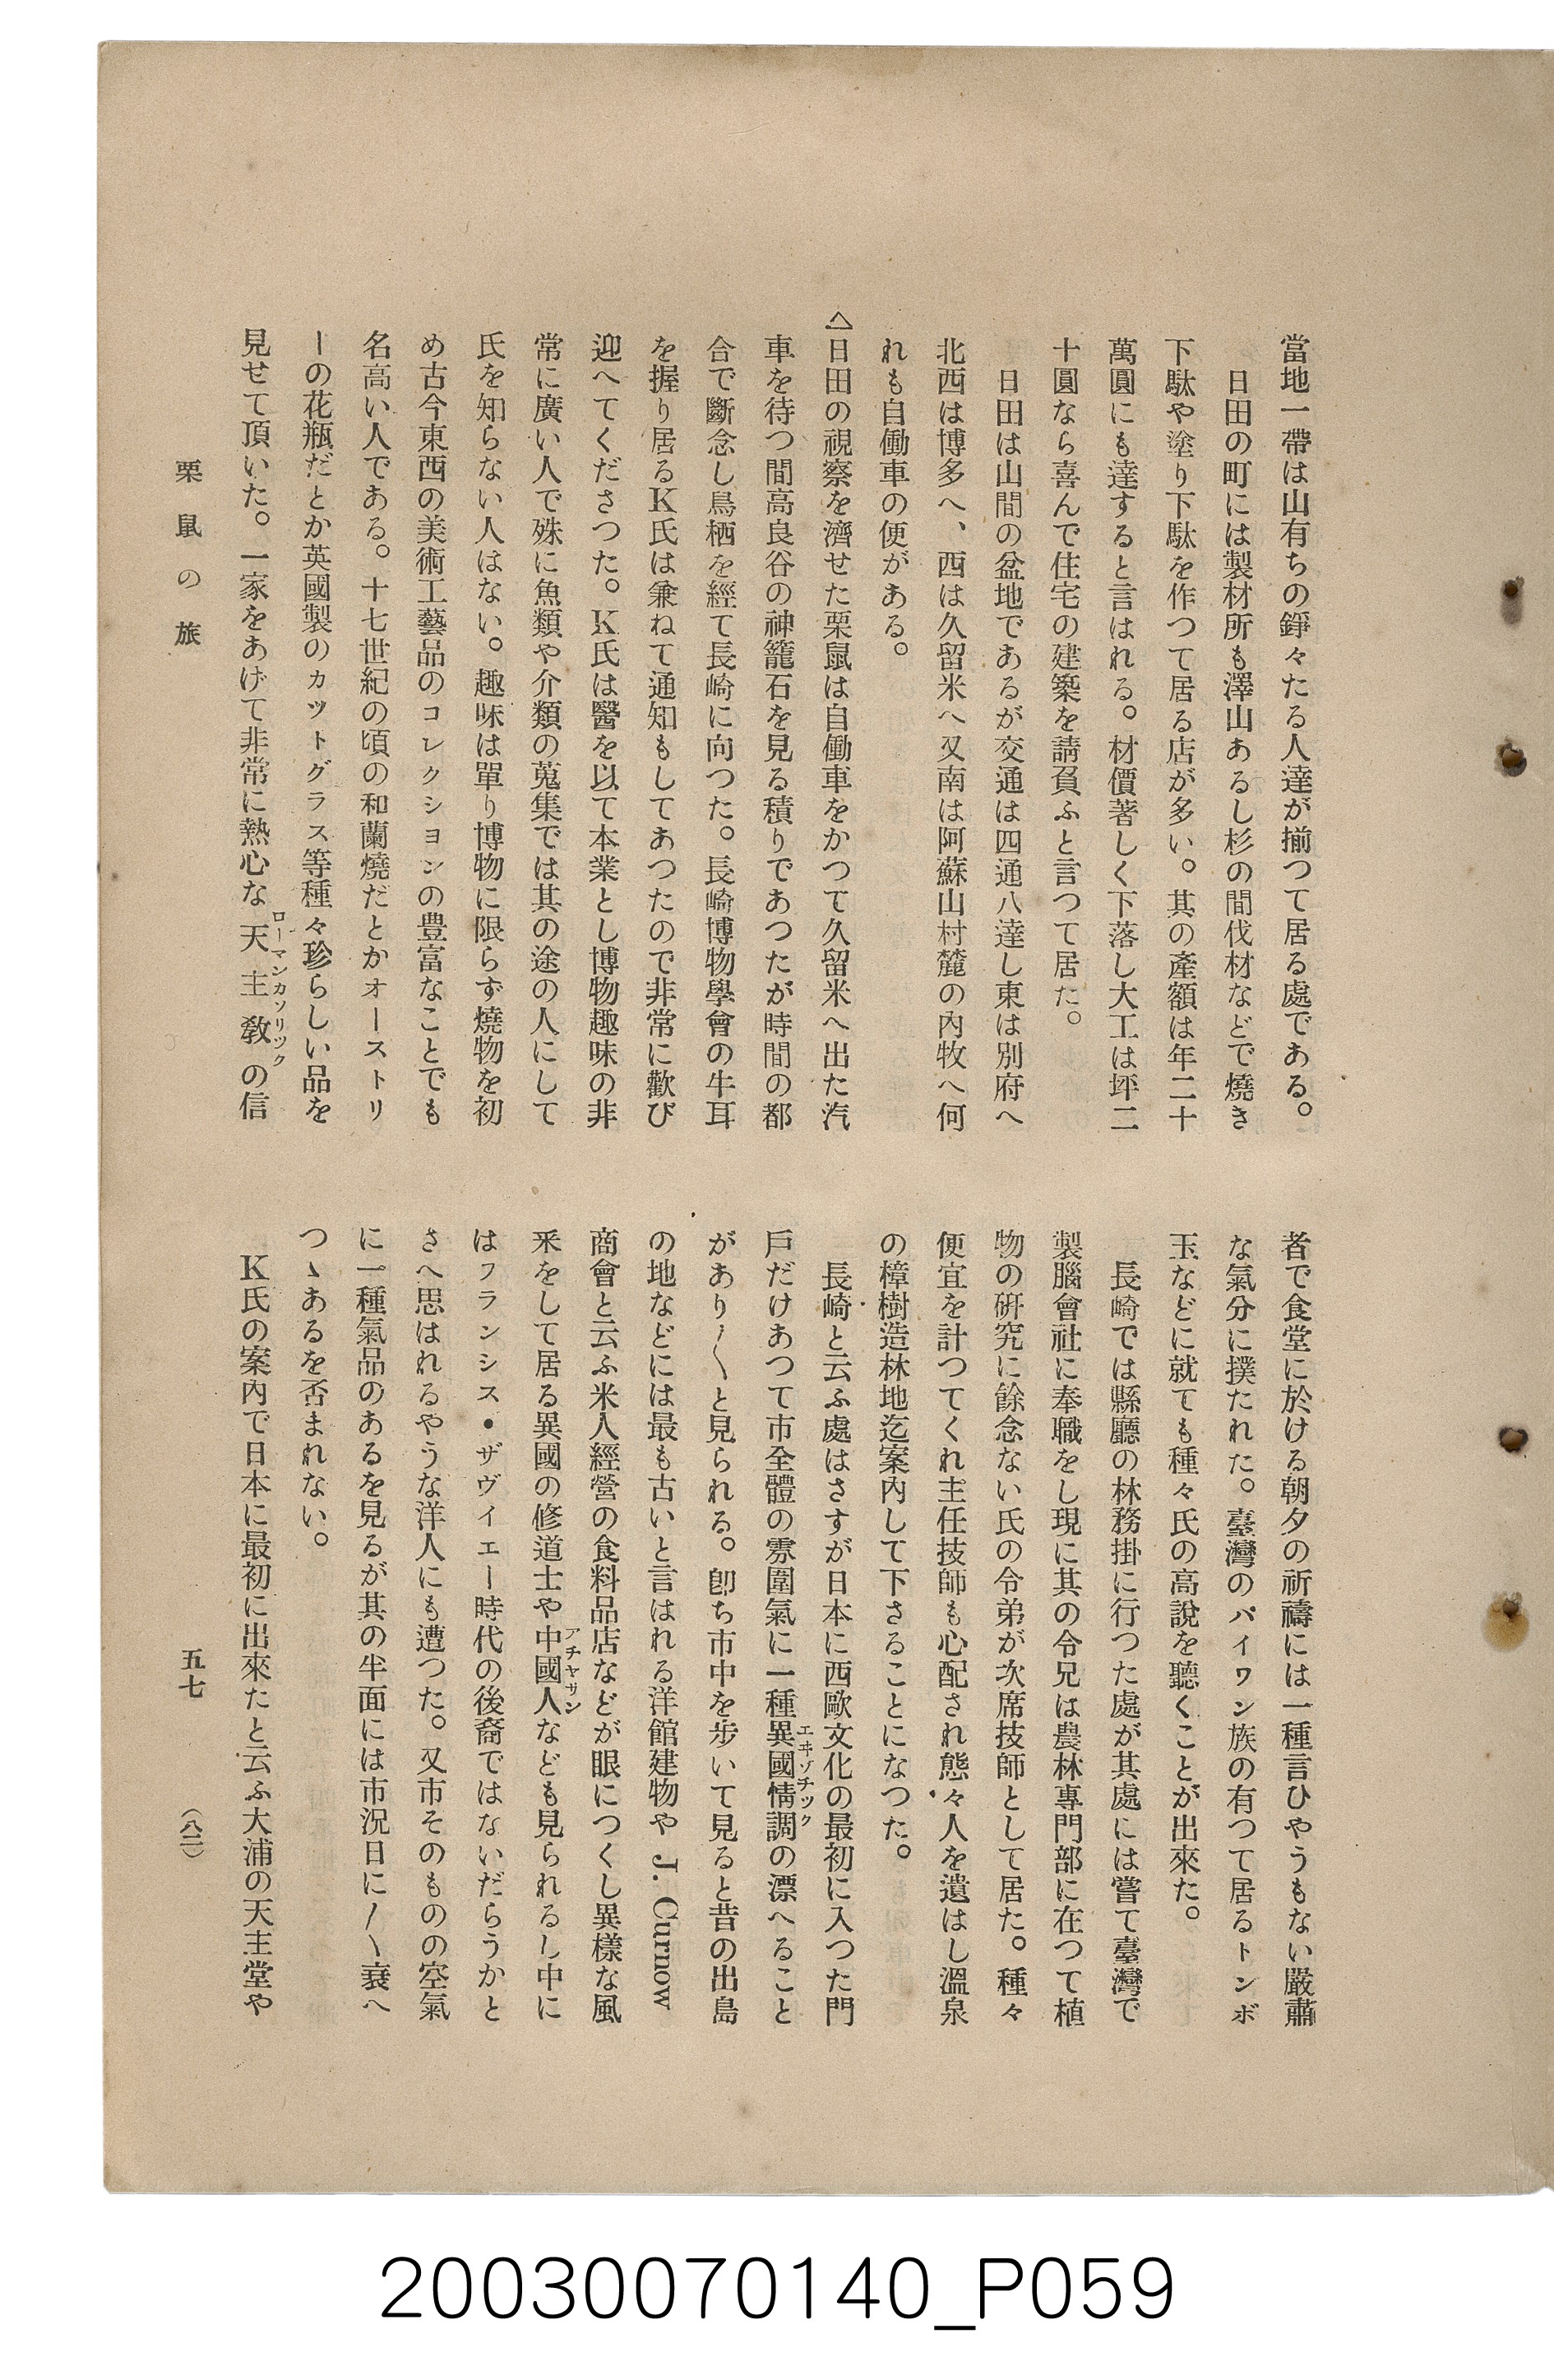 當地一帶は山有ちの錚々たる人達が揃つて居る處である。
日田の町には製材所も澤山あるし杉の間伐材などで燒き
下駄や塗り下駄を作つて居る店が多い。其の產額は年二十
萬圓にも達すると言はれる。材價著しく下落し大工は坪二
十圓なら喜んで住宅の建築を請負ふと言つて居た。
日田は山間の盆地であるが交通は四通八達し東は別府へ
北西は博多へ、西は久留米へ又南は阿蘇山村麓の內牧へ何
れも自働車の便がある。
△日田の視察を濟せた栗鼠は自働車をかつて久留米へ出た汽
車を待つ間高良谷の神籠石を見る積りであつたが時間の都
合で斷念し鳥栖を經て長崎に向つた。長崎博物學會の牛耳
を握り居るK氏は兼ねて通知もしてあつたので非常に歡び
迎へてくださつた。K氏は醫を以て本業とし博物趣味の非
常に廣い人で殊に魚類や介類の蒐集では其の途の人にして
氏を知らない人はない。趣味は單り博物に限らず燒物を初
め古今東西の美術工藝品のコレクシヨンの豊富なことでも
名高い人である。十七世紀の頃の和蘭燒だとかオーストリ
ーの花瓶だとか英國製のカツトグラス等種々珍らしい品を
見せて頂いた。一家をあげて非常に熱心な天主敎の信
ローマンカソリツク
者で食堂に於ける朝夕の祈禱には一種言ひやうもない嚴肅
な氣分に撲たれた。臺灣のパイワン族の有つて居るトンボ
玉などに就ても種々氏の高說を聽くことが出來た。
長崎では縣廳の林務掛に行つた處が其處には嘗て臺灣で
製腦會社に奉職をし現に其の令兄は農林專門部に在つて植
物の硏究に餘念ない氏の令弟が次席技師として居た。種々
便宜を計つてくれ主任技師も心配され態々人を遣はし溫泉
の樟樹造林地迄案內して下さることになつた。
長崎と云ふ處はさすが日本に西歐文化の最初に入つた門
戶だけあつて市全體の雰圍氣に一種異國情調の漂へること
エキゾチツク
があり〳〵と見られる。卽ち市中を步いて見ると昔の出島
の地などには最も古いと言はれる洋館建物や J. Curnow
商會と云ふ米人經營の食料品店などが眼につくし異樣な風
釆をして居る異國の修道士や中國人なども見られるし中に
アチヤサン
はフランシス・ザヴイエー時代の後裔ではないだらうかと
さへ思はれるやうな洋人にも遭つた。又市そのものの空氣
に一種氣品のあるを見るが其の半面には市況日に〳〵衰へ
つゝあるを否まれない。
K氏の案內で日本に最初に出來たと云ふ大浦の天主堂や
栗鼠の旅
五七
(八三)
20030070140_P059